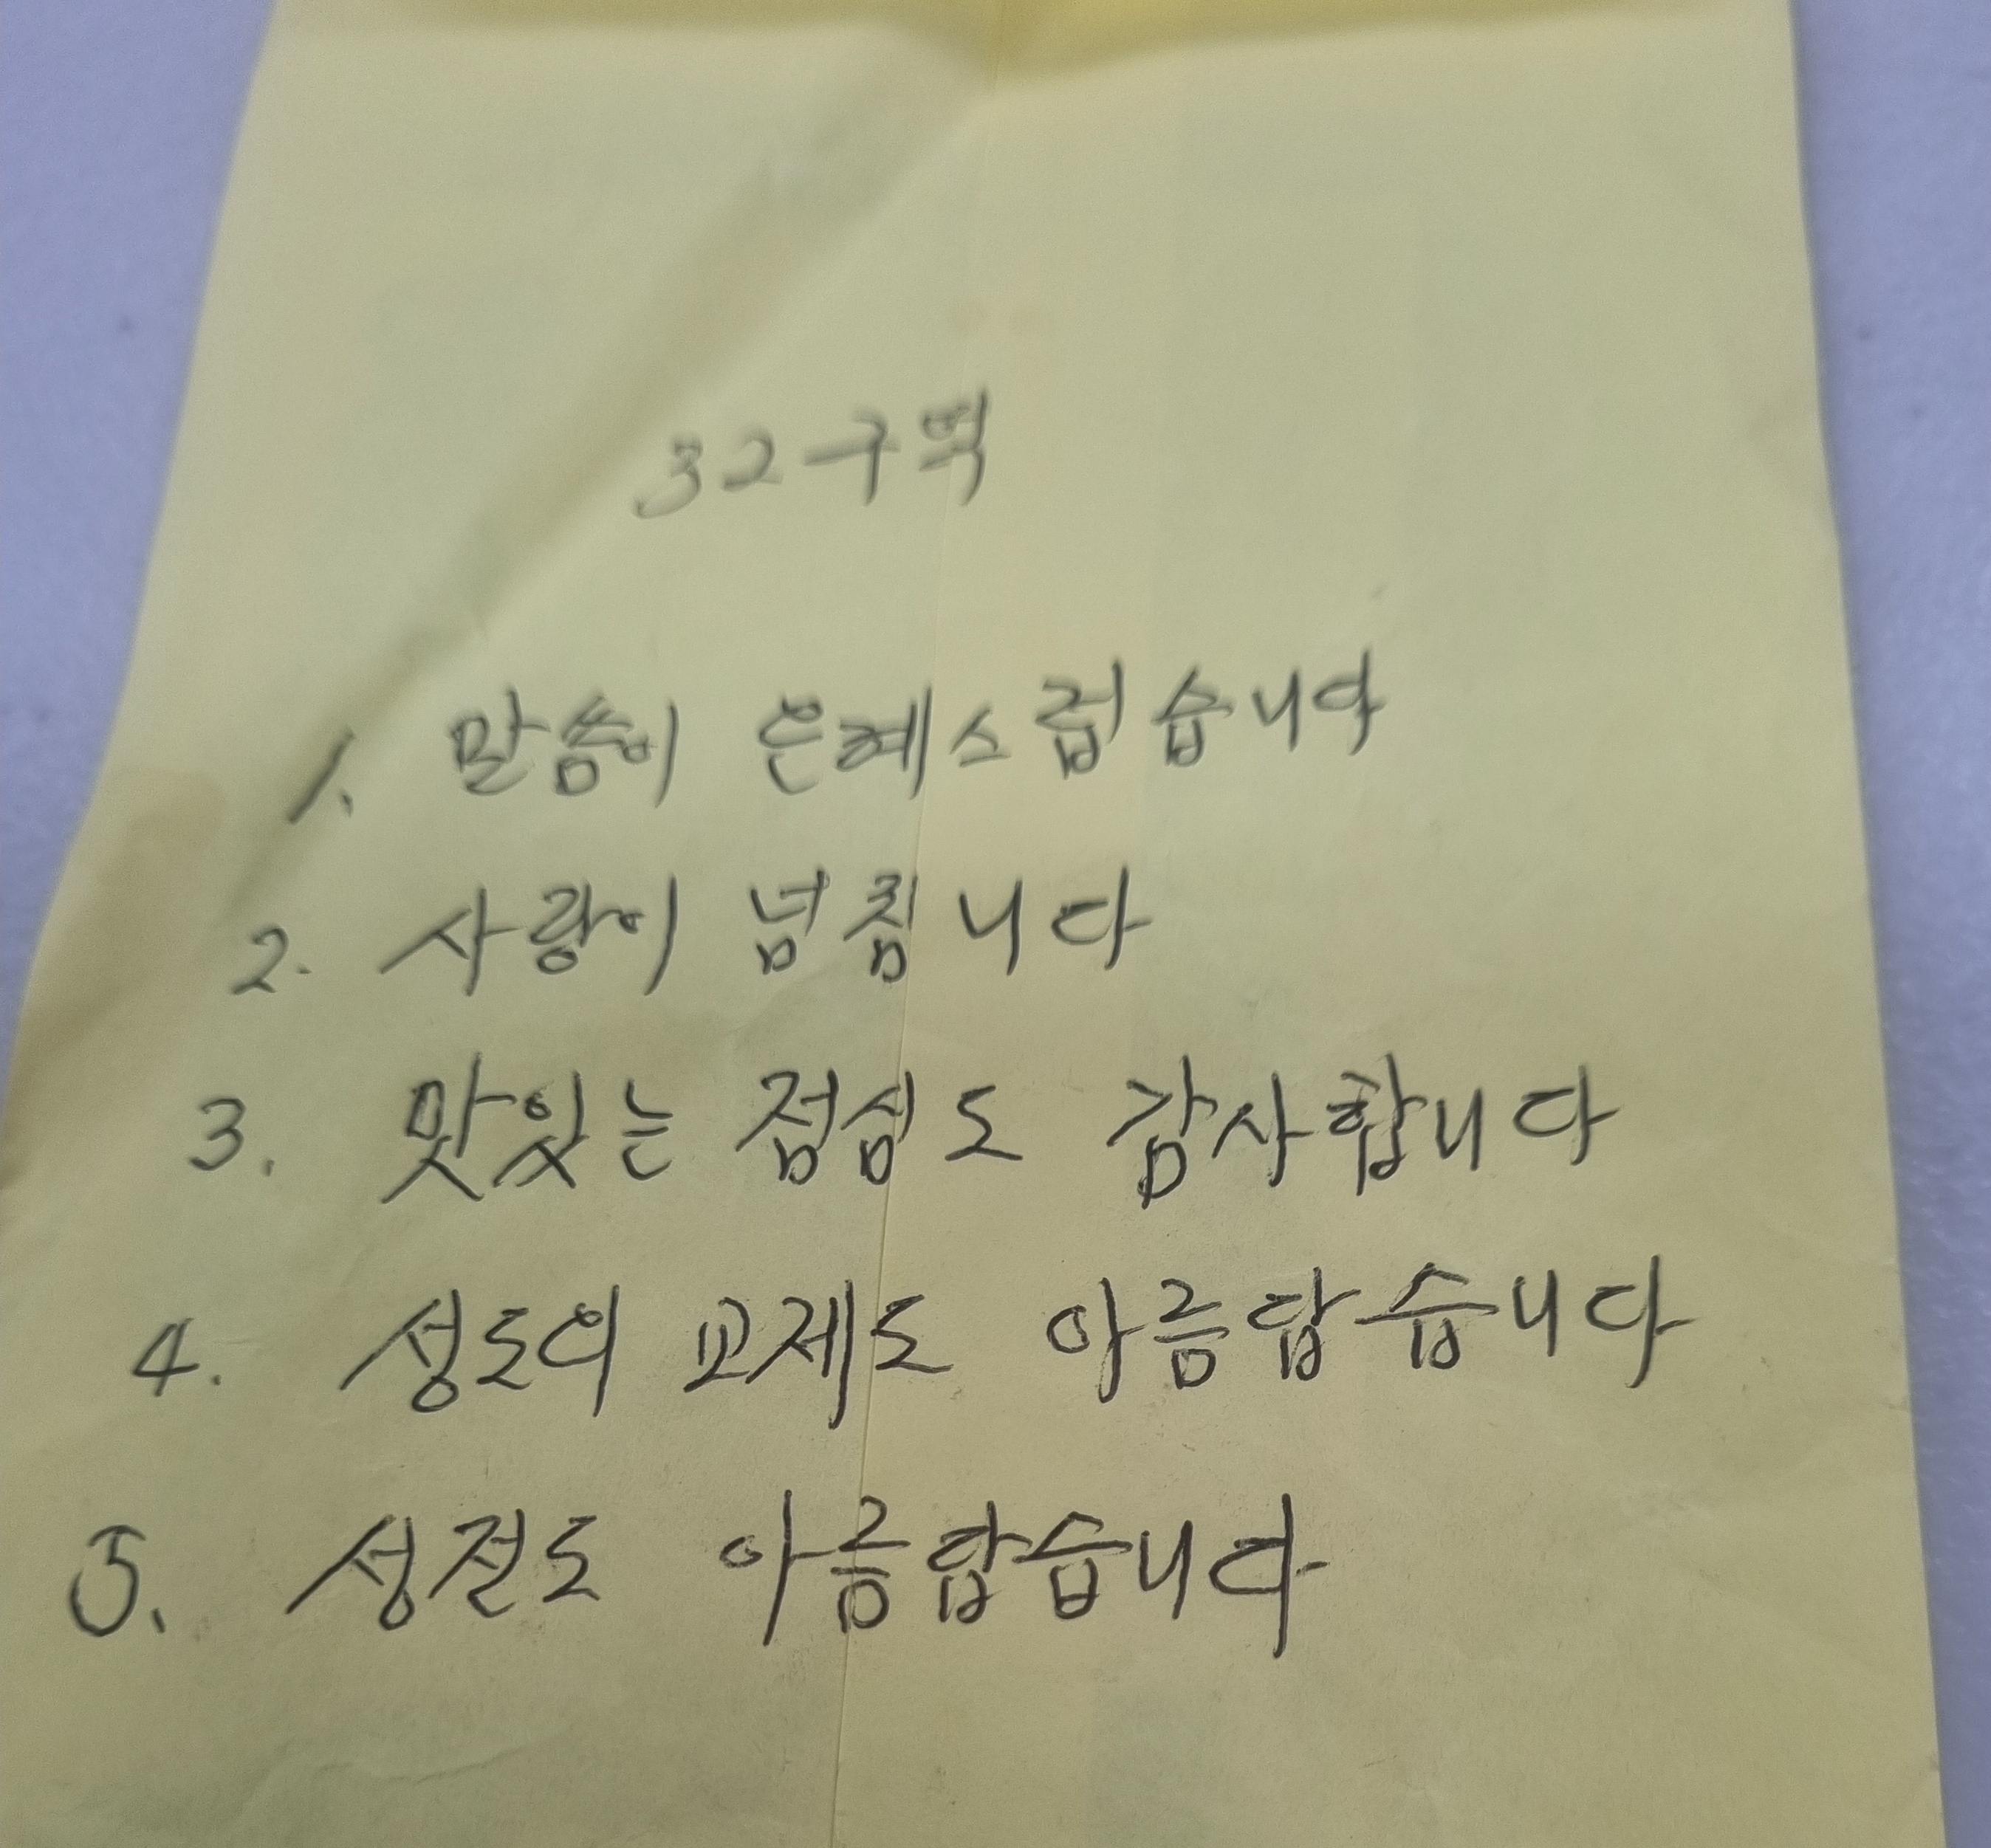 32구역
1. 말씀이 은혜스럽습니다
2. 사랑이 넘칩니다
3. 맛있는 점심도 감사합니다
4. 성도의 교제도 아름답습니다
5. 성전도 아름답습니다